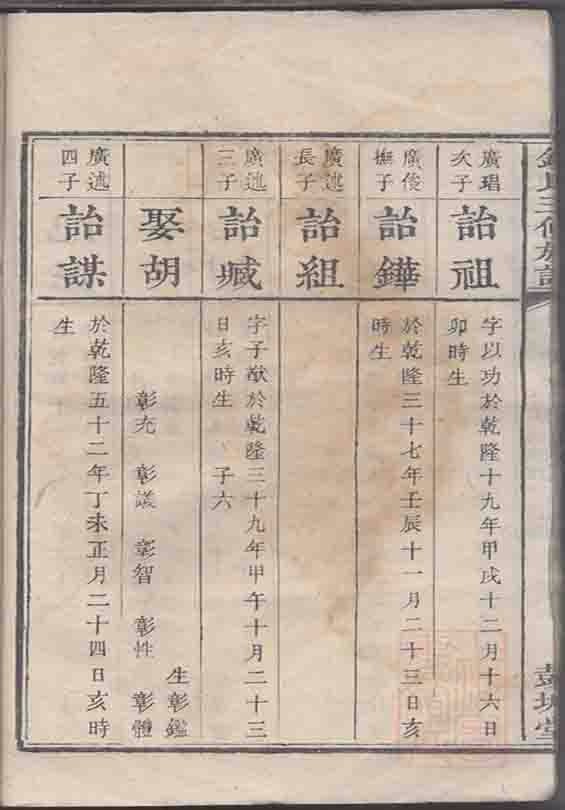 三修族
廣琩
次子
詒祖
字以功於乾隆十九年甲戌十二月十六日
卯時生
廣俊
撫子
詒鏵
於乾隆三十七年壬辰十一月二十三日亥
時生
廣述
長子
詒組
廣述
三子
詒臧
字子猷於乾隆三十九年甲午十月二十三
日亥時生 子六
娶胡
生彰鑑
彰充 彰謨 彰智 彰性 彰體
廣述
四子
詒謀
於乾隆五十二年丁未正月二十四日亥時
生